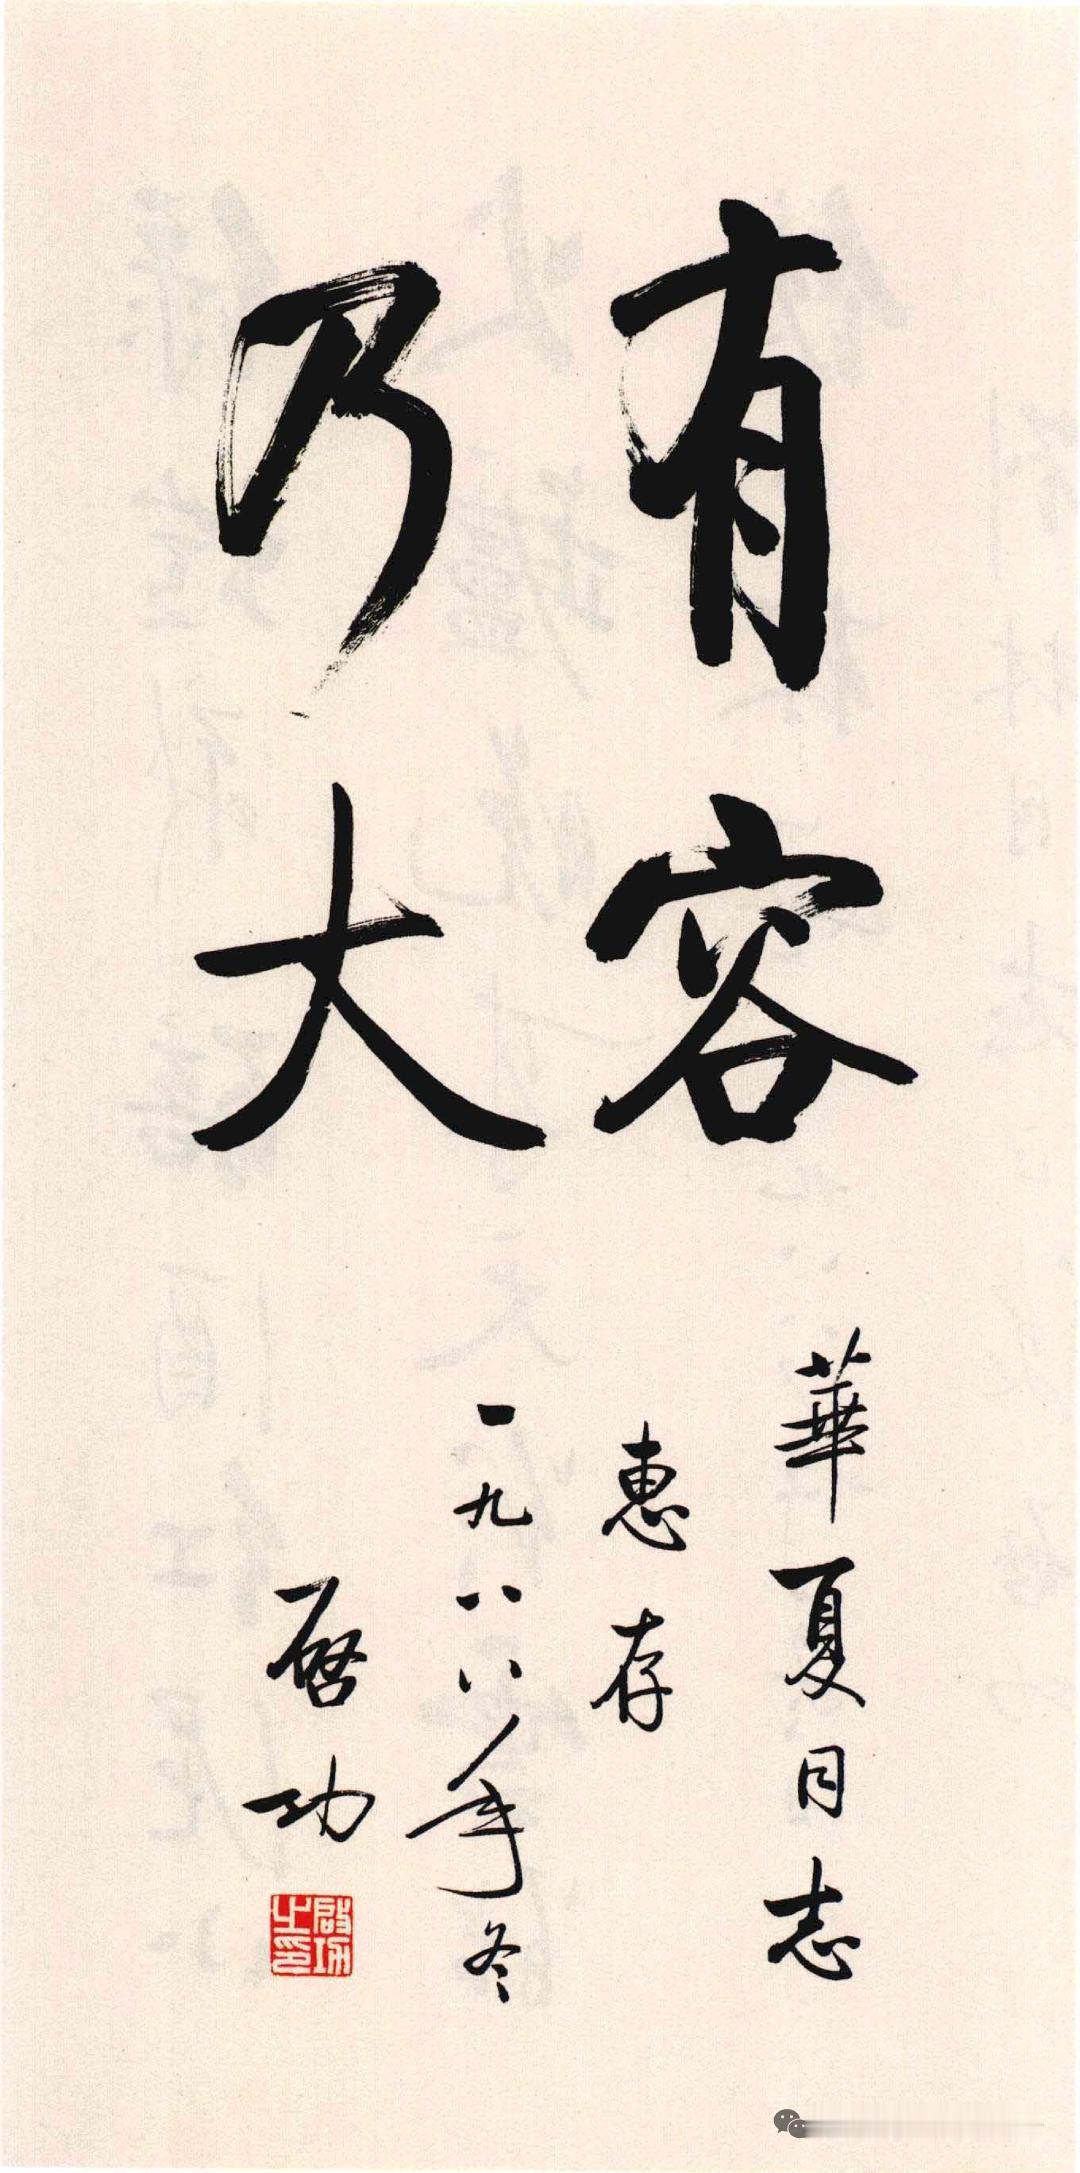 有容
乃大
華夏同志
惠存
一九八八年冬
啓功
啟功之印